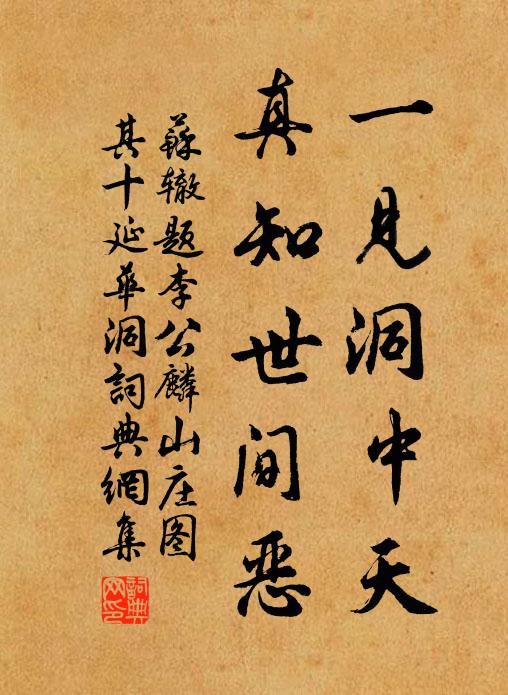 一见洞中天
真知世间恶
苏辙题李公麟山庄图
其十延华洞詞典網集
詞典網印